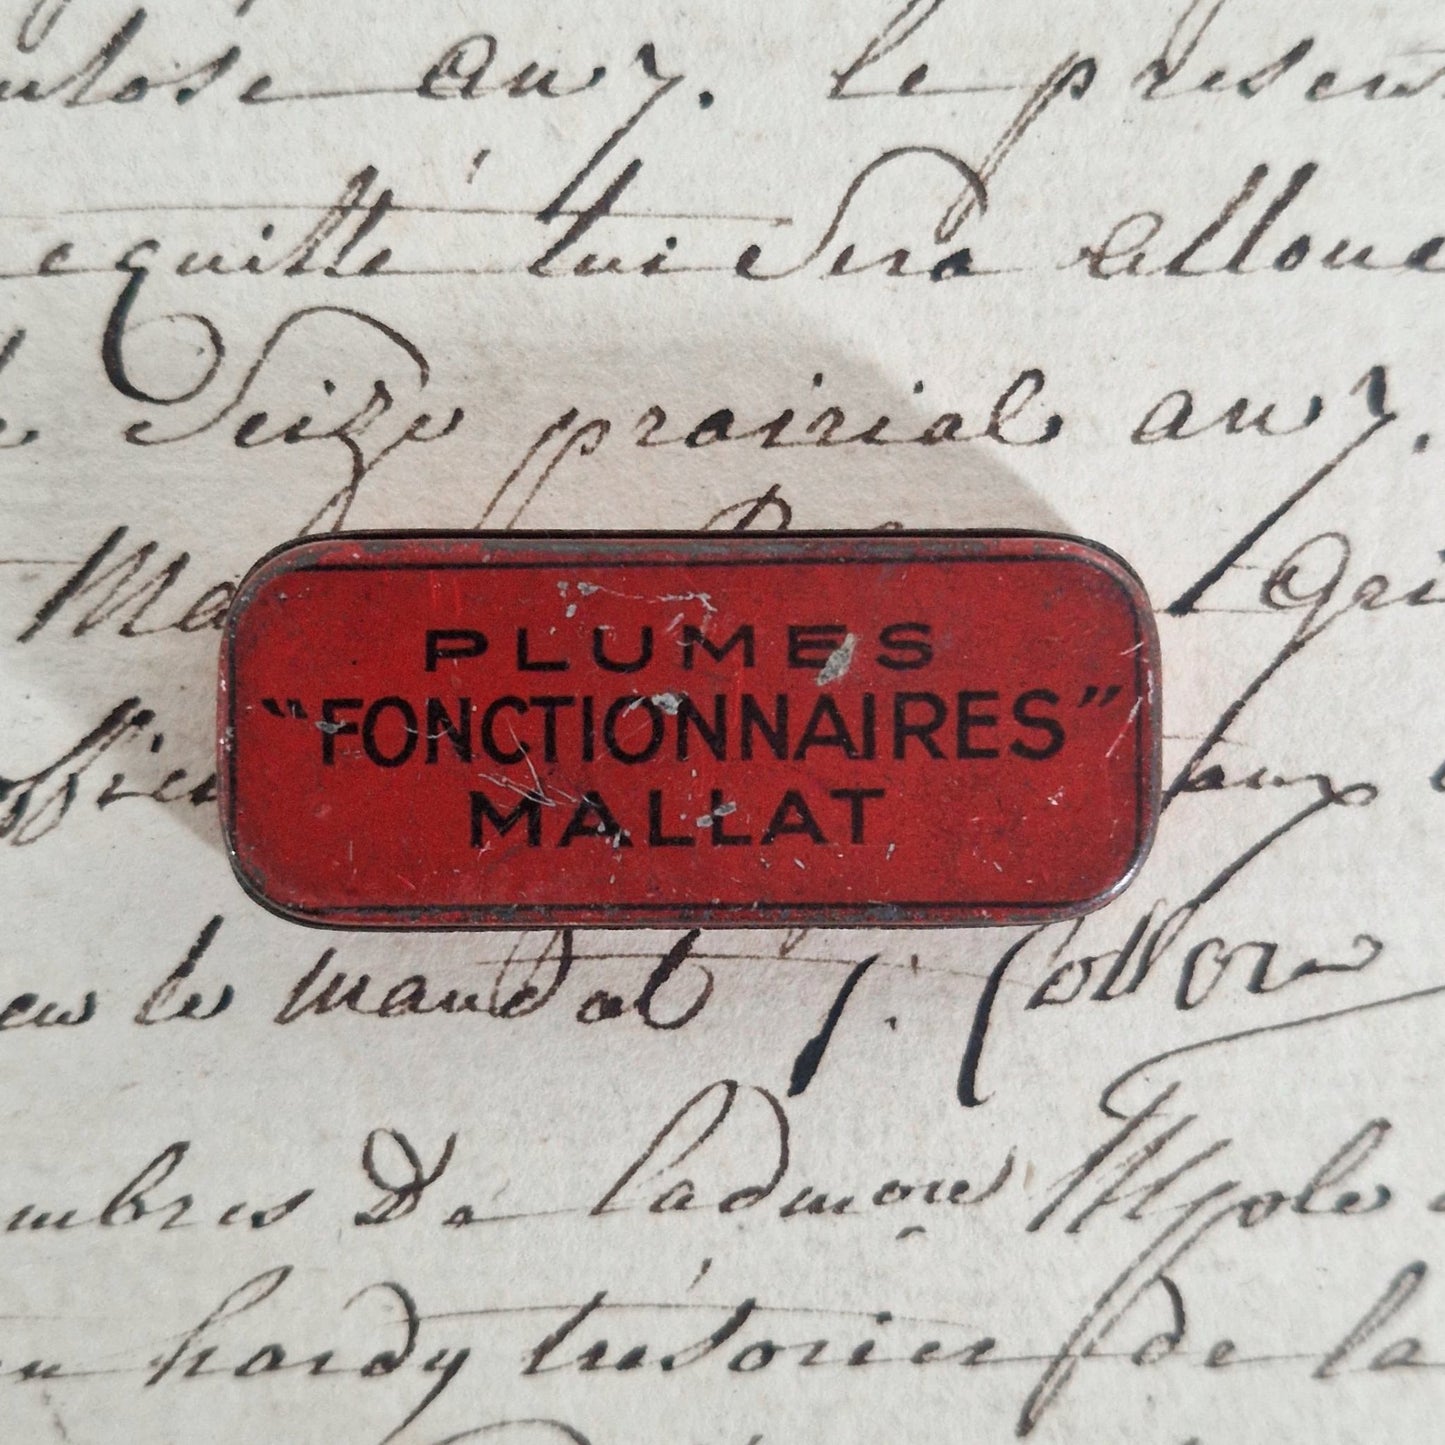 an 7. le present
cquitté lui sera alloué
Seize prairial an 7.
PLUMES
"FONCTIONNAIRES"
MALLAT
aux
le mandat J. Collon
mbres De l'admon
hardy trésorier de la